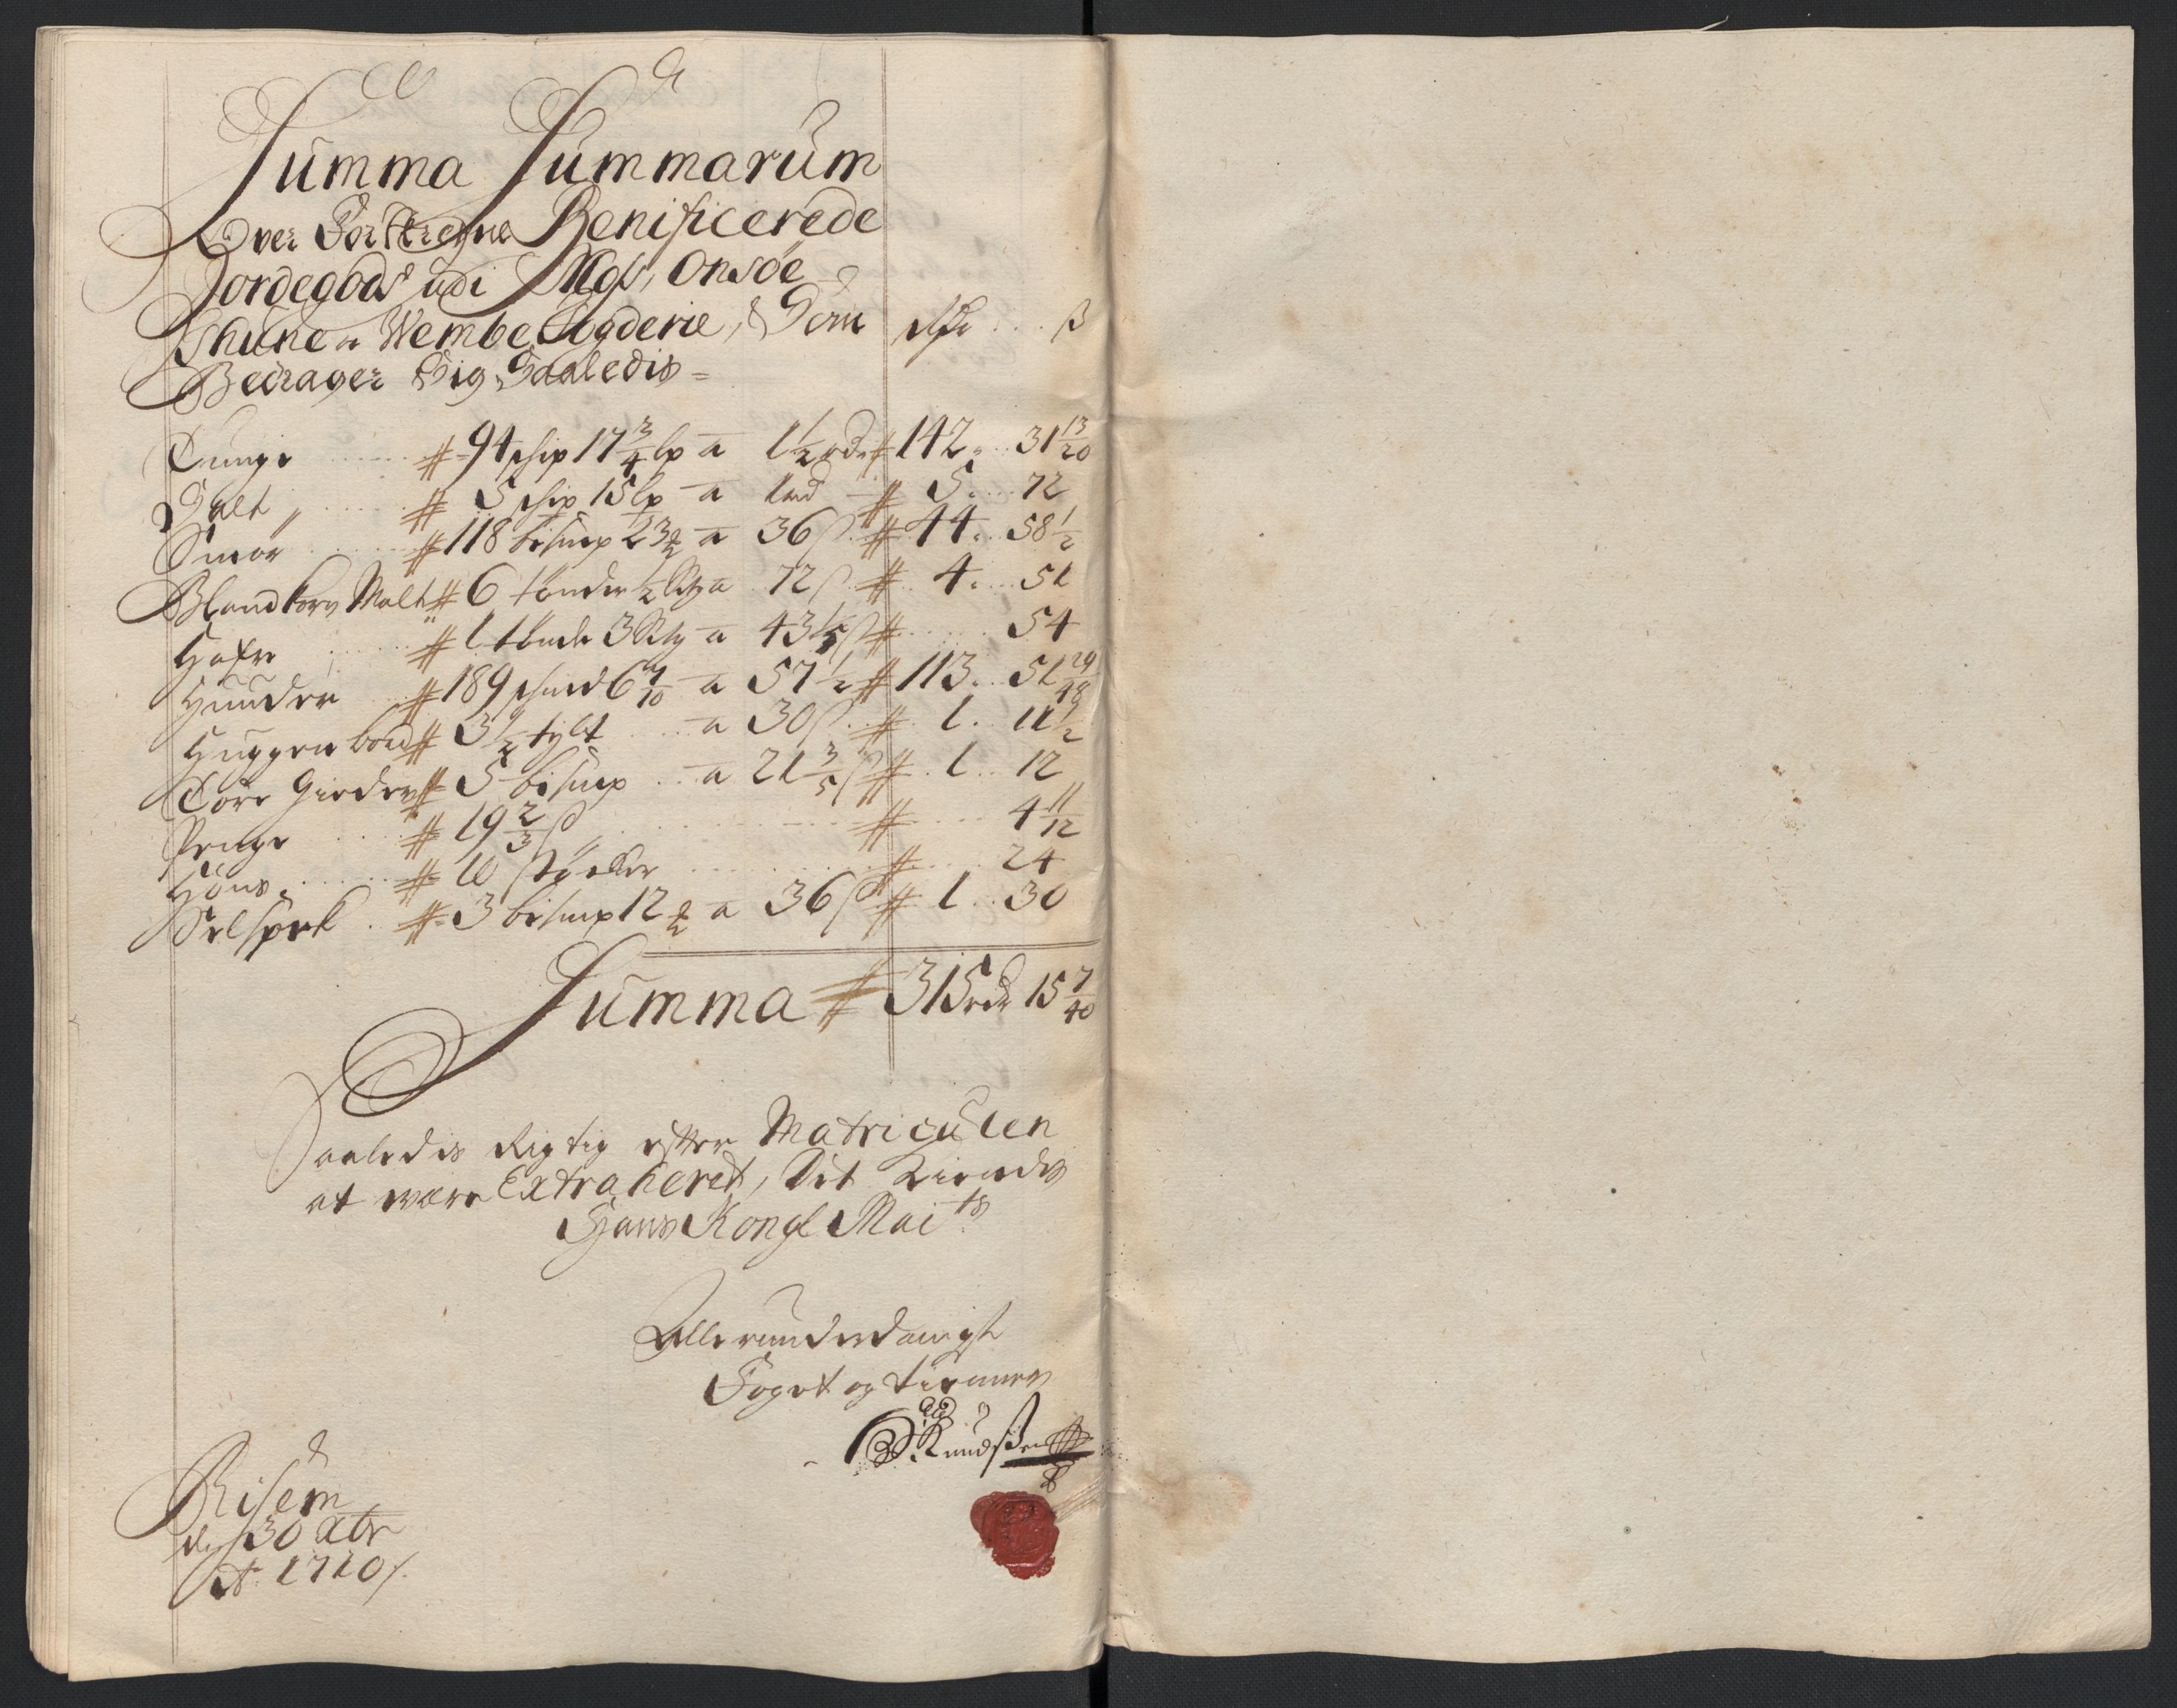 Summa Summarum
Over Forskrefne Benificerede
Jordegods udi Mos, Onsøe
Thune, Wembe Fogderie, Som Rdr ß
Bedrager Sig Saaledis =
Tunge # 94 ship 17 3/4 lp a 1 1/2 rdr # 142 " 31 13/20
Salt " # 5 ship 15 lp a 1 rd # 5 . 72
Smør # 118 bismp 23 ℔ a 36 ß # 44 . 58 1/2
Blandkorn Malt # 6 tønder 1/2 a 72 ß # 4 . 51
Hafre # 1 tønde 3 a 43 1/5 ß # 54
Huuder # 189 shind 6 7/10 a 57 1/2 # 113 . 51 29/48
Huggenbord # 3 1/2 tylt a 30 ß # 1 . 11 1/2
Tørre Gieder # 5 bismp a 21 3/5 ß # 1 . 12
Penge # 19 2/3 ß " # 4 11/12
Høns # 10 støcker # 24
Selspek # 3 bismp 12 ℔ a 36 ß # 1 . 30
Summa # 315 rdr 15 7/40
Saaledis Rigtig efter Matriculen
at være Extraheret, Det Kiendis
Hans Kongl Maits
Allerunderdanigst
Foget og tienner
Knudssen
Risem
den 30 Xbr
Ao 1710 /.